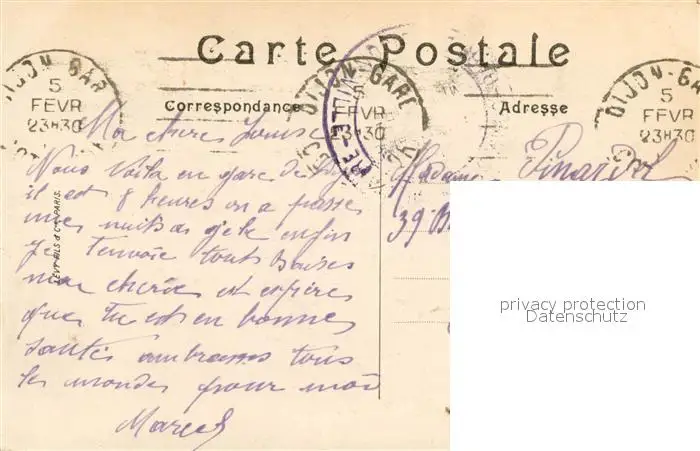 Carte Postale
Correspondance
Adresse
DIJON-GARE
5
FEVR
23H30
DIJON-GARE
5
FEVR
23H30
DIJON-GARE
5
FEVR
23H30
Ma cheres Louise
Nous Voila en gare de
il est 8 heures on a passe
une nuits en fin
je t'envoie tout baises
ma cheries et espères
que tu est en bonnes
santés ambrasses tous
les mondes pour moi
Marcel
Madame Pinardel
39 B
LEVY FILS & Cie PARIS.
privacy protection
Datenschutz